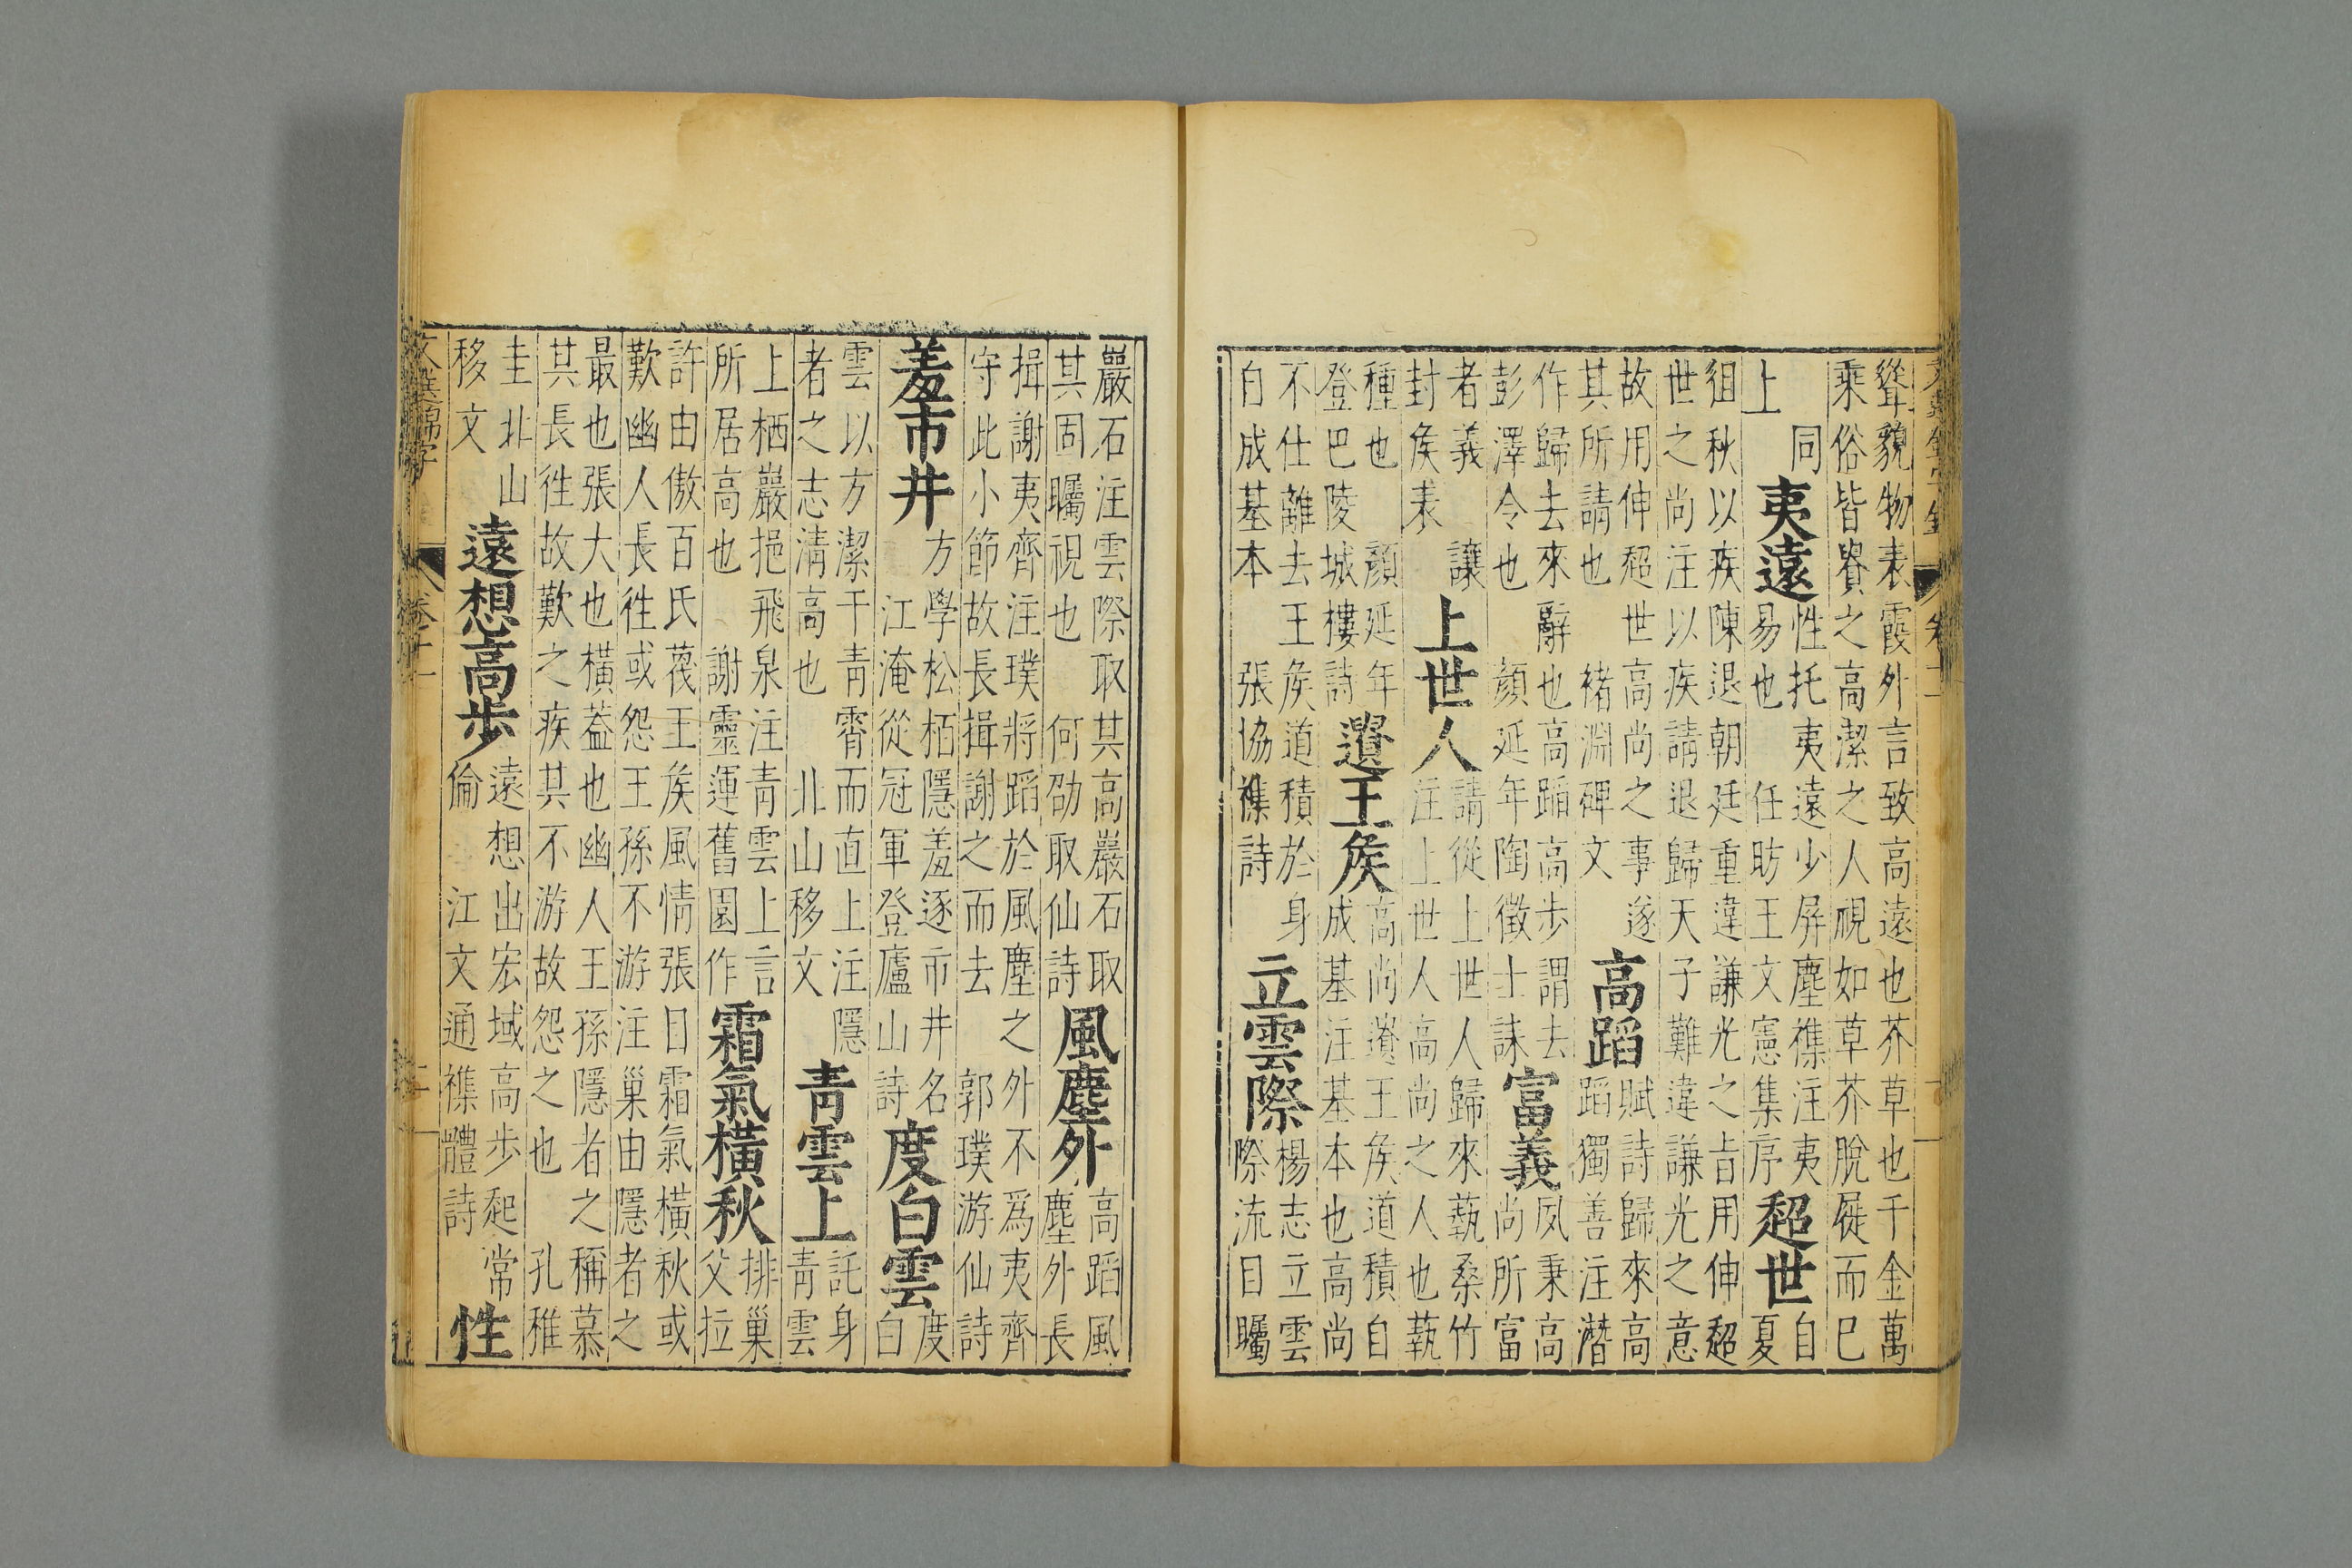 聳貌物表霞外言致高遠也芥草也千金萬
乘俗皆之高潔之人視如草芥脫屣而已
同
上
夷遠
性托夷遠少屏塵襍注夷
易也 任昉王文憲集序
超世
自
夏
徂秋以疾陳退朝廷重違謙光之旨用伸超
世之尚注以疾請退歸天子難違謙光之意
故用伸超世高尚之事遂
其所請也 褚淵碑文
高蹈
賦詩歸來高
蹈獨善注潛
作歸去來辭也高蹈高步謂去
彭澤令也 顏延年陶徵士誄
富義
夙秉高
尚所富
者義 讓
封矦表
上世人
請從上世人歸來蓺桑竹
注上世人高尚之人也蓺
種也 顏延年
登巴陵城樓詩
遺王矦
高尚遺王矦道積自
成基注基本也高尚
不仕離去王矦道積於身
自成基本 張協襍詩
立雲際
楊志立雲
際流目矚
巖石注雲際取其高巖石取
其固矚視也 何劭取仙詩
風塵外
高蹈風
塵外長
揖謝夷齊注璞將蹈於風塵之外不爲夷齊
守此小節故長揖謝之而去 郭璞游仙詩
羞市井
方學松栢隱羞逐市井名
江淹從冠軍登廬山詩
度白雲
度
白
雲以方潔干青霄而直上注隱
者之志清高也 北山移文
青雲上
託身
青雲
上栖巖挹飛泉注青雲上言
所居高也 謝靈運舊園作
霜氣橫秋
排巢
父拉
許由傲百氏蔑王矦風情張日霜氣橫秋或
歎幽人長徃或怨王孫不游注巢由隱者之
最也張大也橫葢也幽人王孫隱者之稱慕
其長徃故歎之疾其不游故怨之也 孔稚
圭北山
移文
遠想高步
遠想出宏域高步起常
倫 江文通襍體詩
性